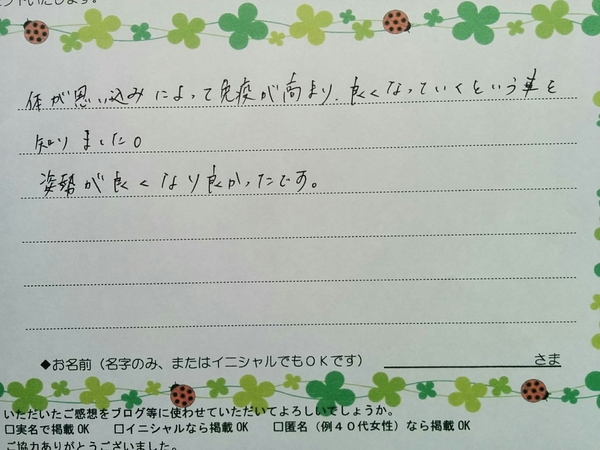 体が思い込みによって免疫が高まり、良くなっていくという事を
知りました。
姿勢が良くなり良かったです。
◆お名前（名字のみ、またはイニシャルでもOKです）　　　　　　さま
いただいたご感想をブログ等に使わせていただいてよろしいでしょうか。
□実名で掲載OK　□イニシャルなら掲載OK　□匿名（例４０代女性）なら掲載OK
ご協力ありがとうございました。